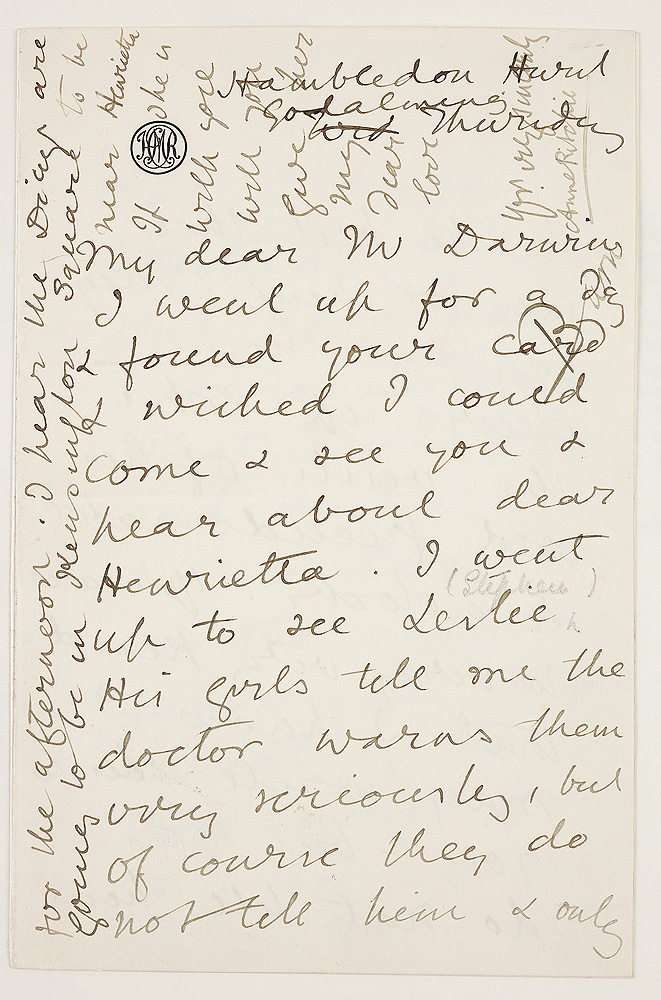 Hambledon Hurst
Godalming
Wed Thursday
HAR
My dear Mr Darwin
I went up for a day
& found your card
& wished I could
come & see you &
hear about dear
Henrietta. I went
(Stephen)
up to see Leslie
His girls tell me the
doctor warns them
very seriously, but
of course they do
not tell him & only
for the afternoon. I hear the Diceys are
going to be in Kensington Square to be
near Henrietta
If she is
with you
will you
give her
my
dear
love
Yrs
Anne Ritchie